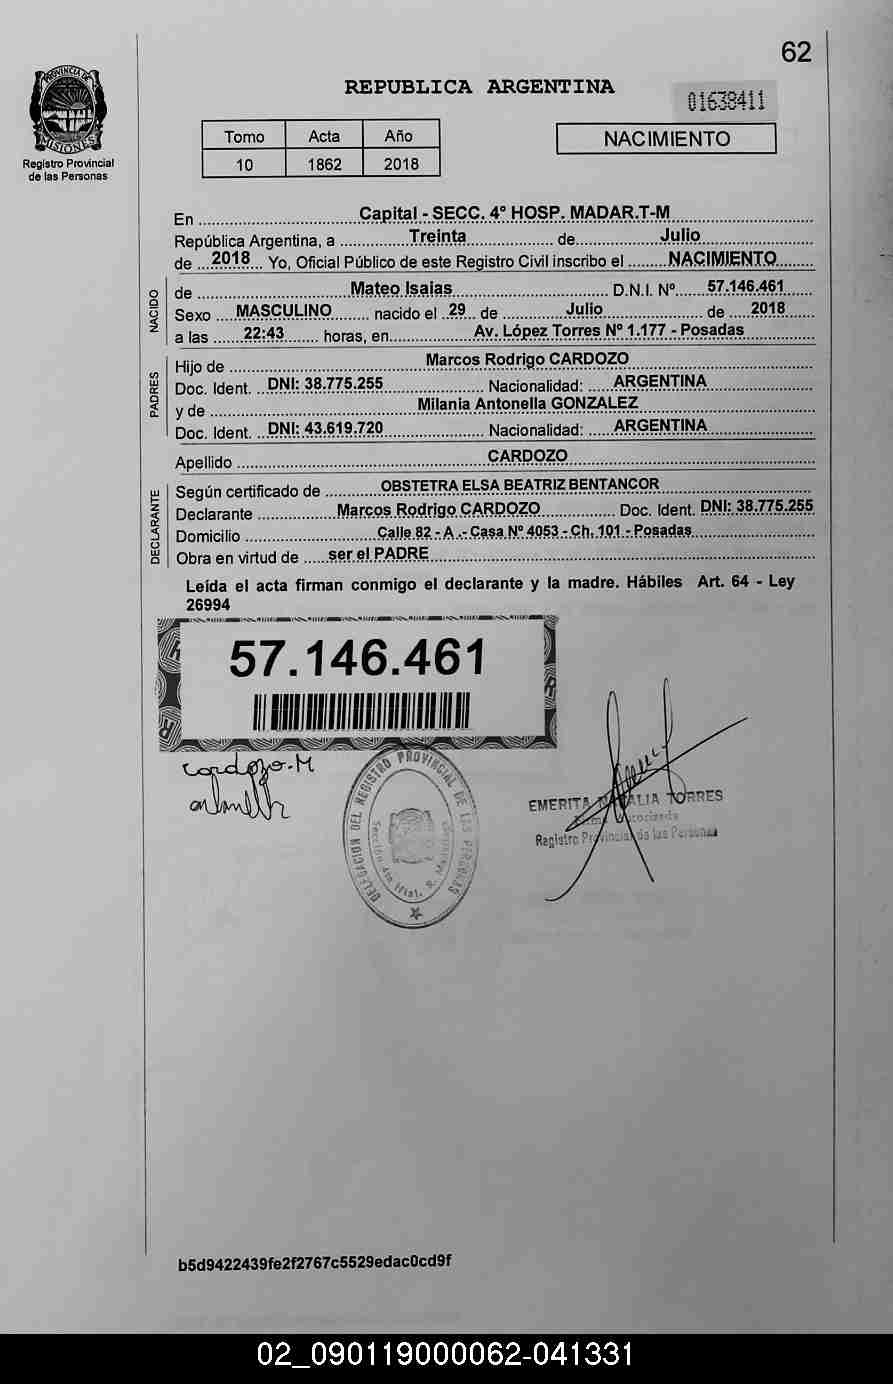 62
REPUBLICA ARGENTINA
01638411
PROVINCIA DE
MISIONES
Registro Provincial
de las Personas
Tomo Acta Año
10 1862 2018
NACIMIENTO
En Capital - SECC. 4° HOSP. MADAR.T-M
República Argentina, a Treinta de Julio
de 2018 Yo, Oficial Público de este Registro Civil inscribo el NACIMIENTO
NACIDO
de Mateo Isaias D.N.I. Nº 57.146.461
Sexo MASCULINO nacido el 29 de Julio de 2018
a las 22:43 horas, en Av. López Torres Nº 1.177 - Posadas
PADRES
Hijo de Marcos Rodrigo CARDOZO
Doc. Ident. DNI: 38.775.255 Nacionalidad: ARGENTINA
y de Milania Antonella GONZALEZ
Doc. Ident. DNI: 43.619.720 Nacionalidad: ARGENTINA
Apellido CARDOZO
DECLARANTE
Según certificado de OBSTETRA ELSA BEATRIZ BENTANCOR
Declarante Marcos Rodrigo CARDOZO Doc. Ident. DNI: 38.775.255
Domicilio Calle 82 - A .- Casa Nº 4053 - Ch. 101 - Posadas
Obra en virtud de ser el PADRE
Leída el acta firman conmigo el declarante y la madre. Hábiles Art. 64 - Ley
26994
57.146.461
cardozo.M
DELEGACION DEL REGISTRO PROVINCIAL DE LAS PERSONAS
EMERITA TORRES
Registro Provincial de las Personas
b5d9422439fe2f2767c5529edac0cd9f
02_090119000062-041331